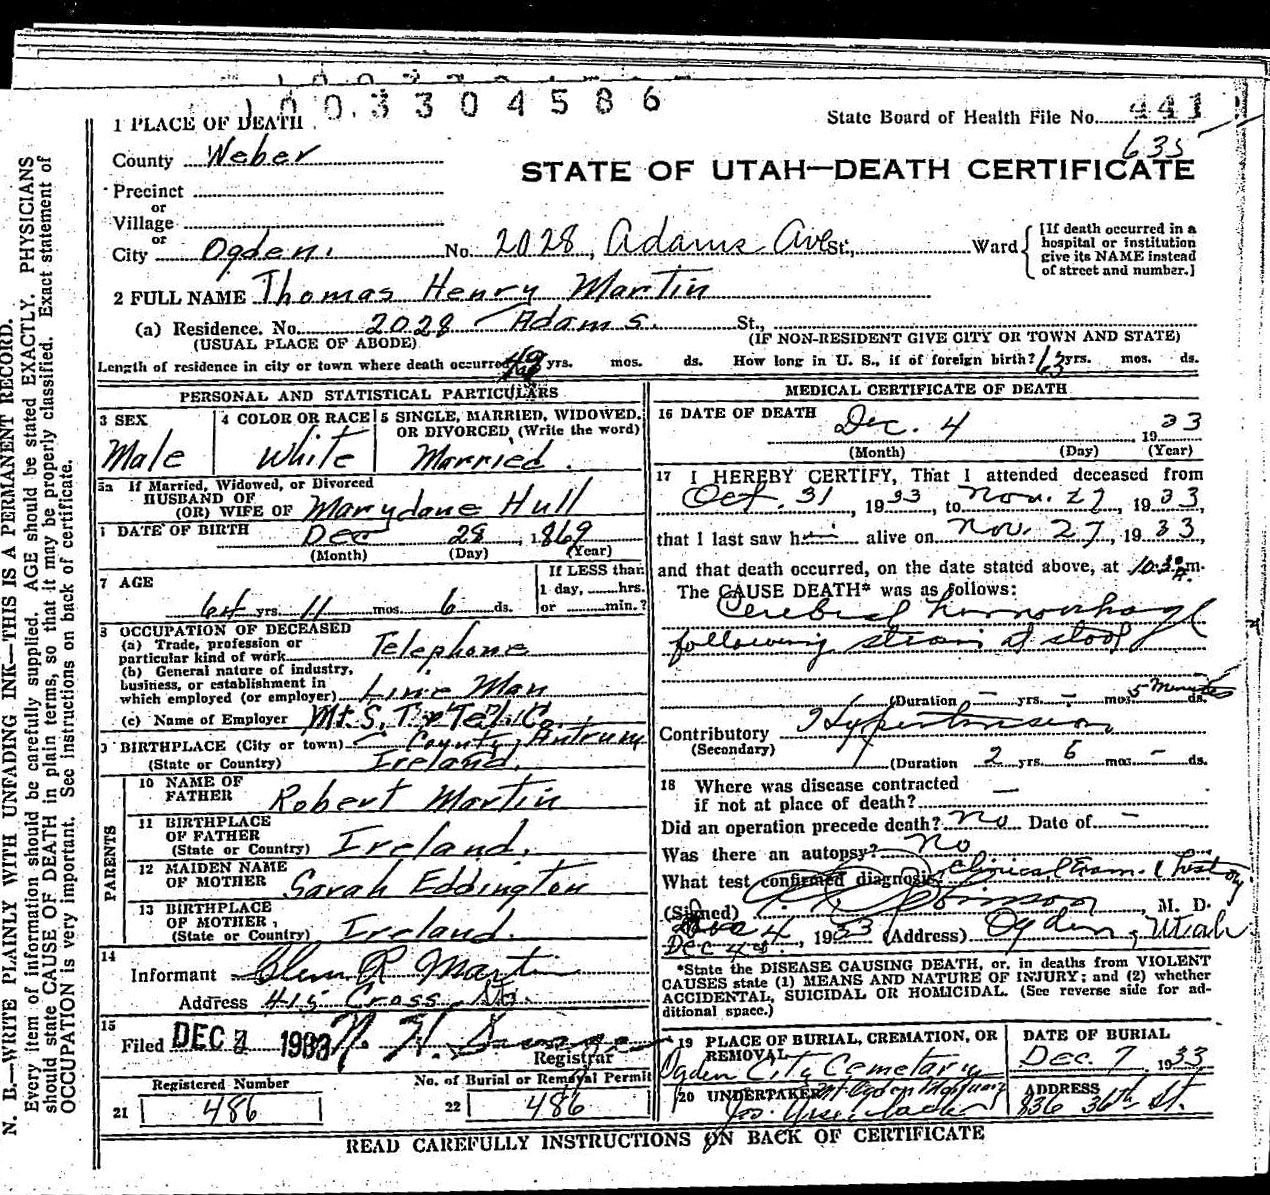 1003304586
State Board of Health File No. 441
635
STATE OF UTAH—DEATH CERTIFICATE
1 PLACE OF DEATH
County Weber
Precinct
or
Village
or
City Ogden. No. 2028, Adams Ave St., Ward
[If death occurred in a hospital or institution give its NAME instead of street and number.]
2 FULL NAME Thomas Henry Martin
(a) Residence. No. 2028 Adams. St.,
(USUAL PLACE OF ABODE) (IF NON-RESIDENT GIVE CITY OR TOWN AND STATE)
Length of residence in city or town where death occurred 49 yrs. mos. ds. How long in U. S., if of foreign birth? 63 yrs. mos. ds.
PERSONAL AND STATISTICAL PARTICULARS
3 SEX
Male
4 COLOR OR RACE
White
5 SINGLE, MARRIED, WIDOWED, OR DIVORCED, (Write the word)
Married.
5a If Married, Widowed, or Divorced
HUSBAND OF
(OR) WIFE OF Maryjane Hull
DATE OF BIRTH Dec 28, 1869
(Month) (Day) (Year)
7 AGE
64 yrs. 11 mos. 6 ds.
If LESS than
1 day, hrs.
or min.?
8 OCCUPATION OF DECEASED
(a) Trade, profession or
particular kind of work Telephone
(b) General nature of industry,
business, or establishment in
which employed (or employer) Line Man
(c) Name of Employer Mt. S. T & Tel. Co.
9 BIRTHPLACE (City or town) County Antrum
(State or Country) Ireland.
PARENTS
10 NAME OF
FATHER Robert Martin
11 BIRTHPLACE
OF FATHER
(State or Country) Ireland.
12 MAIDEN NAME
OF MOTHER Sarah Eddington
13 BIRTHPLACE
OF MOTHER,
(State or Country) Ireland.
14
Informant Glenn R Martin
Address 415 Cross St.
15
Filed DEC 7 1933
Registrar
Registered Number
21 486
No. of Burial or Removal Permit
22 486
MEDICAL CERTIFICATE OF DEATH
16 DATE OF DEATH
Dec. 4 1933
(Month) (Day) (Year)
17 I HEREBY CERTIFY, That I attended deceased from
Oct. 31, 1933, to Nov. 27, 1933,
that I last saw him alive on Nov. 27, 1933,
and that death occurred, on the date stated above, at 10:30 m.
The CAUSE DEATH* was as follows:
Cerebral hemorrhage
following strain at stool
(Duration — yrs. — mos. 5 minutes ds.
Contributory Hypertension
(Secondary)
(Duration 2 yrs. 6 mos. — ds.
18 Where was disease contracted
if not at place of death? —
Did an operation precede death? no Date of —
Was there an autopsy? No
What test confirmed diagnosis Clinical Exam. & history
(Signed) M. D.
Dec 4, 1933 (Address) Ogden, Utah
*State the DISEASE CAUSING DEATH, or, in deaths from VIOLENT
CAUSES state (1) MEANS AND NATURE OF INJURY; and (2) whether
ACCIDENTAL, SUICIDAL OR HOMICIDAL. (See reverse side for additional space.)
19 PLACE OF BURIAL, CREMATION, OR
REMOVAL
Ogden City Cemetary
DATE OF BURIAL
Dec. 7 1933
20 UNDERTAKER Mt Ogden
ADDRESS
836 36th St.
READ CAREFULLY INSTRUCTIONS ON BACK OF CERTIFICATE
N. B.—WRITE PLAINLY WITH UNFADING INK—THIS IS A PERMANENT RECORD.
Every item of information should be carefully supplied. AGE should be stated EXACTLY. PHYSICIANS
should state CAUSE OF DEATH in plain terms, so that it may be properly classified. Exact statement of
OCCUPATION is very important. See instructions on back of certificate.